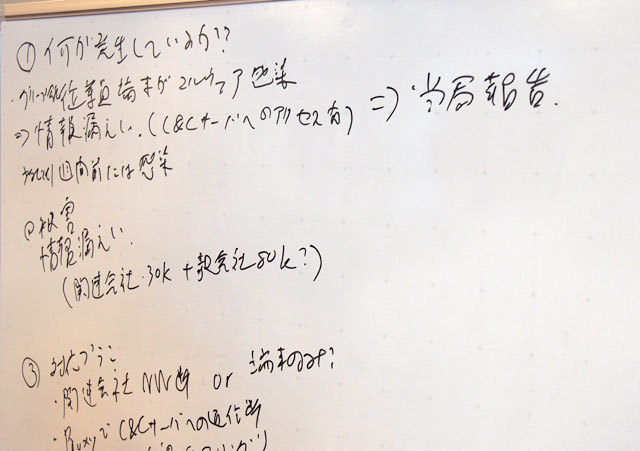 ① 何が発生しているか?
・グループ会社従業員端末がマルウェア感染
⇒ 情報漏えい. (C&Cサーバへのアクセス有) ⇒ ・当局報告.
週間前には感染
② 被害
情報漏えい.
(関連会社・30k + 親会社80k?)
③ 対応プラン
・関連会社 NW断 or 端末のみ?
・ProxyでC&Cサーバへの通信断